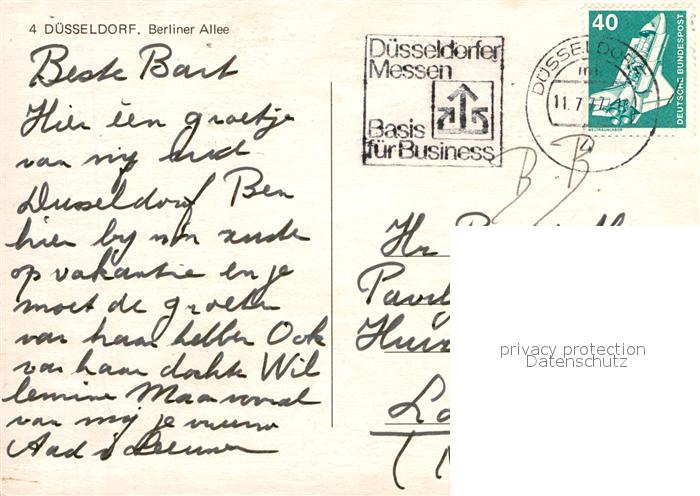 4 DÜSSELDORF, Berliner Allee
Beste Bart
Hier één groetje
van mij uit
Dusseldorf Ben
hier by mn zuste
op vakantie en je
moet de groeten
van haar hebben Ook
van haar dochte Wil
lemine Maar vooral
van mij je
Aad
Düsseldorfer
Messen
Basis
für Business
DÜSSELDORF
11.7.77
40
DEUTSCHE BUNDESPOST
WELTRAUMLABOR
B.B.
Hr
Pavil
Huiz
privacy protection
Datenschutz